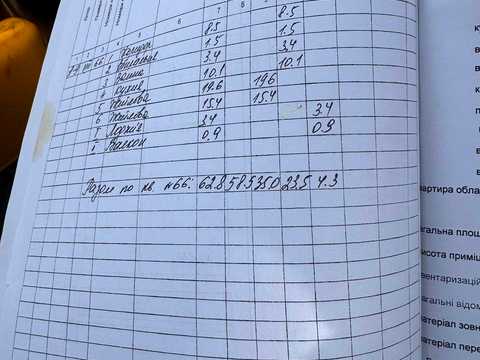 1 2 3 4 5 6 7 8
1 Коридор 8.5 8.5
2 Вбиральня 1.5 1.5
3 Ванна 3.4 3.4
4 Кухня 10.1 10.1
5 Житлова 19.6 19.6
6 Житлова 15.4 15.4
7 Лоджія 3.4 3.4
8 Балкон 0.9 0.9
Разом по кв. №66: 62.8 58.5 35.0 23.5 4.3
вартира обла
агальна площ
исота приміщ
вентаризацій
агальні відом
матеріал зовн
матеріал пере